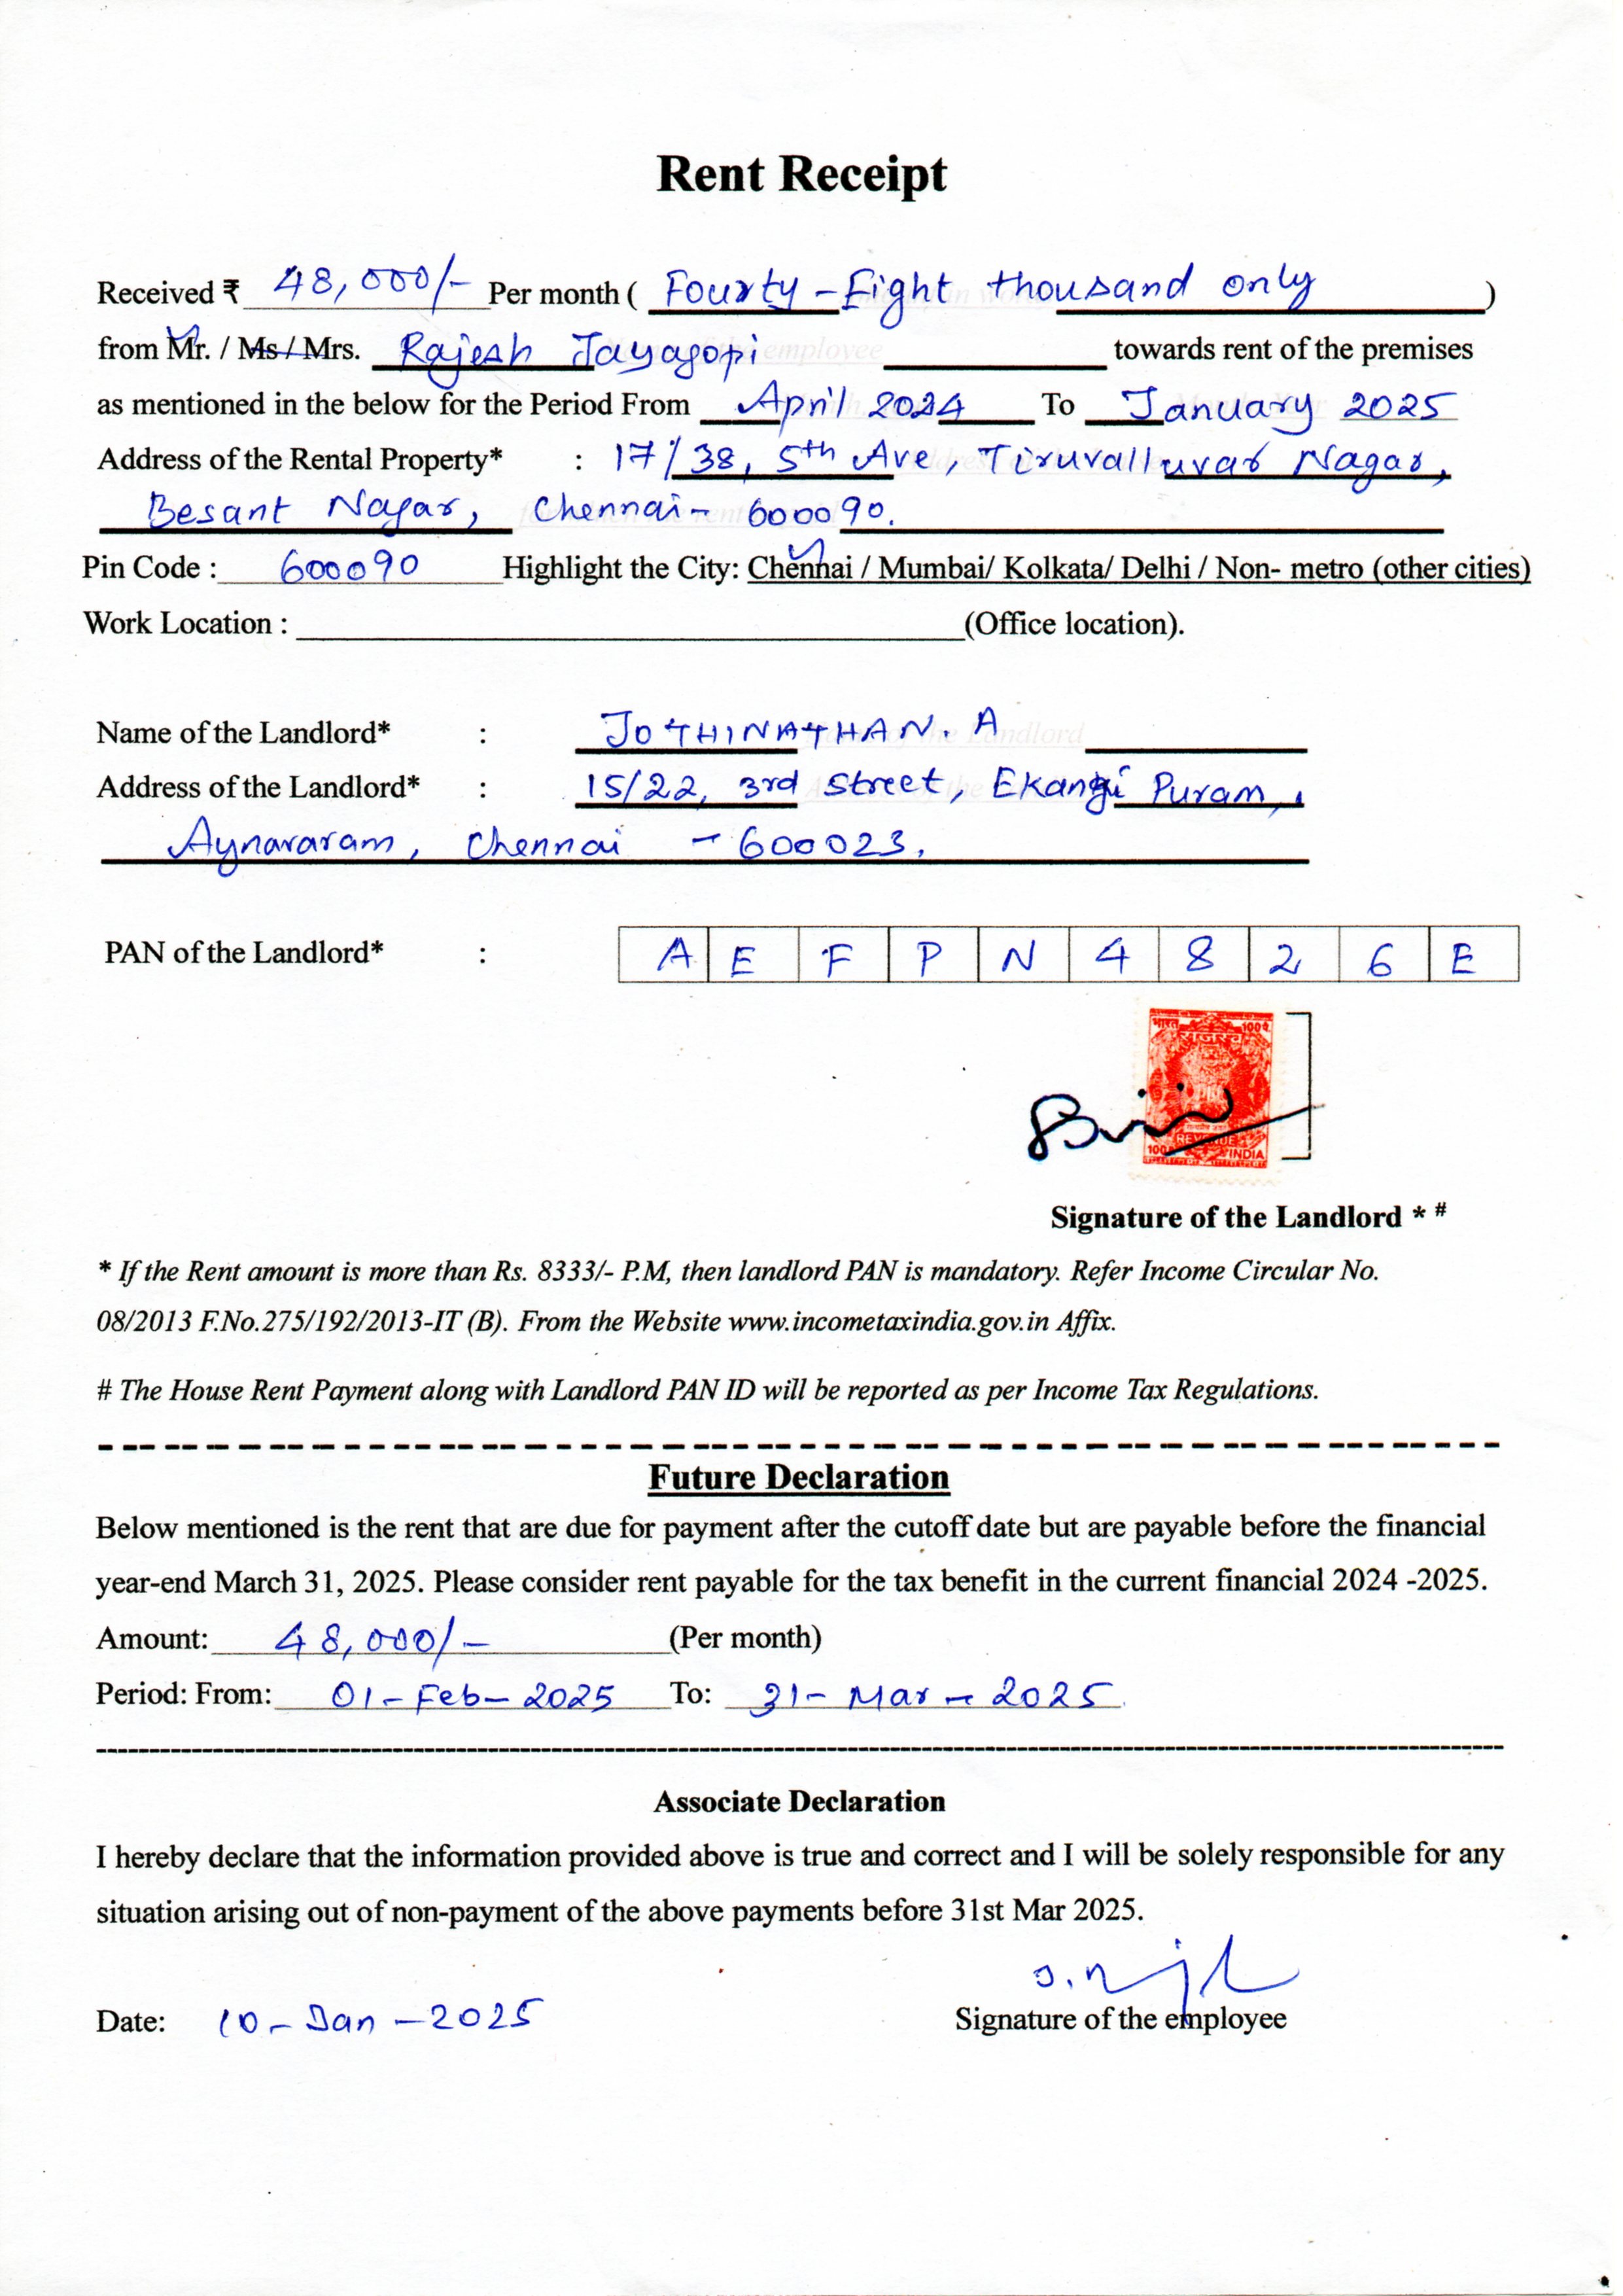 Rent Receipt
Received ₹ 48,000/- Per month ( Fourty-Eight thousand only )
from Mr. / Ms / Mrs. Rajesh Jayagopi towards rent of the premises
as mentioned in the below for the Period From April 2024 To January 2025
Address of the Rental Property* : 17/38, 5th Ave, Tiruvalluvar Nagar,
Besant Nagar, Chennai- 600090.
Pin Code : 600090 Highlight the City: Chennai / Mumbai/ Kolkata/ Delhi / Non- metro (other cities)
Work Location : (Office location).
Name of the Landlord* : JOTHINATHAN. A
Address of the Landlord* : 15/22, 3rd Street, Ekangi Puram,
Aynavaram, Chennai - 600023.
PAN of the Landlord* : A E F P N 4 8 2 6 E
भारत 100
राजस्व
REVENUE
100 INDIA
Signature of the Landlord * #
* If the Rent amount is more than Rs. 8333/- P.M, then landlord PAN is mandatory. Refer Income Circular No.
08/2013 F.No.275/192/2013-IT (B). From the Website www.incometaxindia.gov.in Affix.
# The House Rent Payment along with Landlord PAN ID will be reported as per Income Tax Regulations.
Future Declaration
Below mentioned is the rent that are due for payment after the cutoff date but are payable before the financial
year-end March 31, 2025. Please consider rent payable for the tax benefit in the current financial 2024 -2025.
Amount: 48,000/- (Per month)
Period: From: 01-Feb-2025 To: 31-Mar-2025
Associate Declaration
I hereby declare that the information provided above is true and correct and I will be solely responsible for any
situation arising out of non-payment of the above payments before 31st Mar 2025.
Date: 10-Jan-2025 Signature of the employee